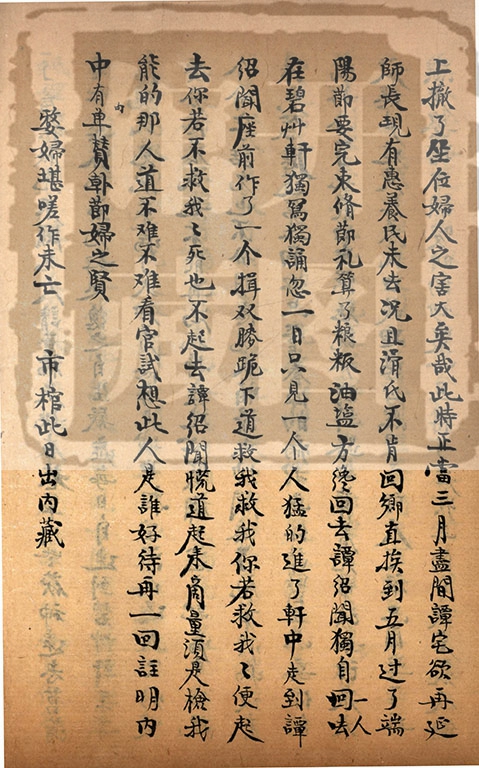 上撤了坐位婦人之害大矣哉此時正當三月盡間譚宅欲再延
師長現有惠養民未去况且滑氏不肯回鄉直挨到五月過了端
陽節要完束修節礼算了粮粄油塩方纔回去譚紹聞獨自一人回去
在碧艸軒獨寫獨誦忽一日只見一个人猛的進了軒中走到譚
紹聞座前作了一个揖双膝跪下道救我救我你若救我〻便起
去你若不救我〻死也不起去譚紹聞慌道起來商量須是槍我
能的那人道不难不难看官試想此人是誰好待再一回註明内
中有車賛卧節婦之賢
内
婺婦堪嗟作未亡 市棺此日出内藏